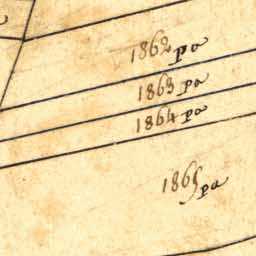 1862 pa
1863 pa
1864 pa
1865 pa